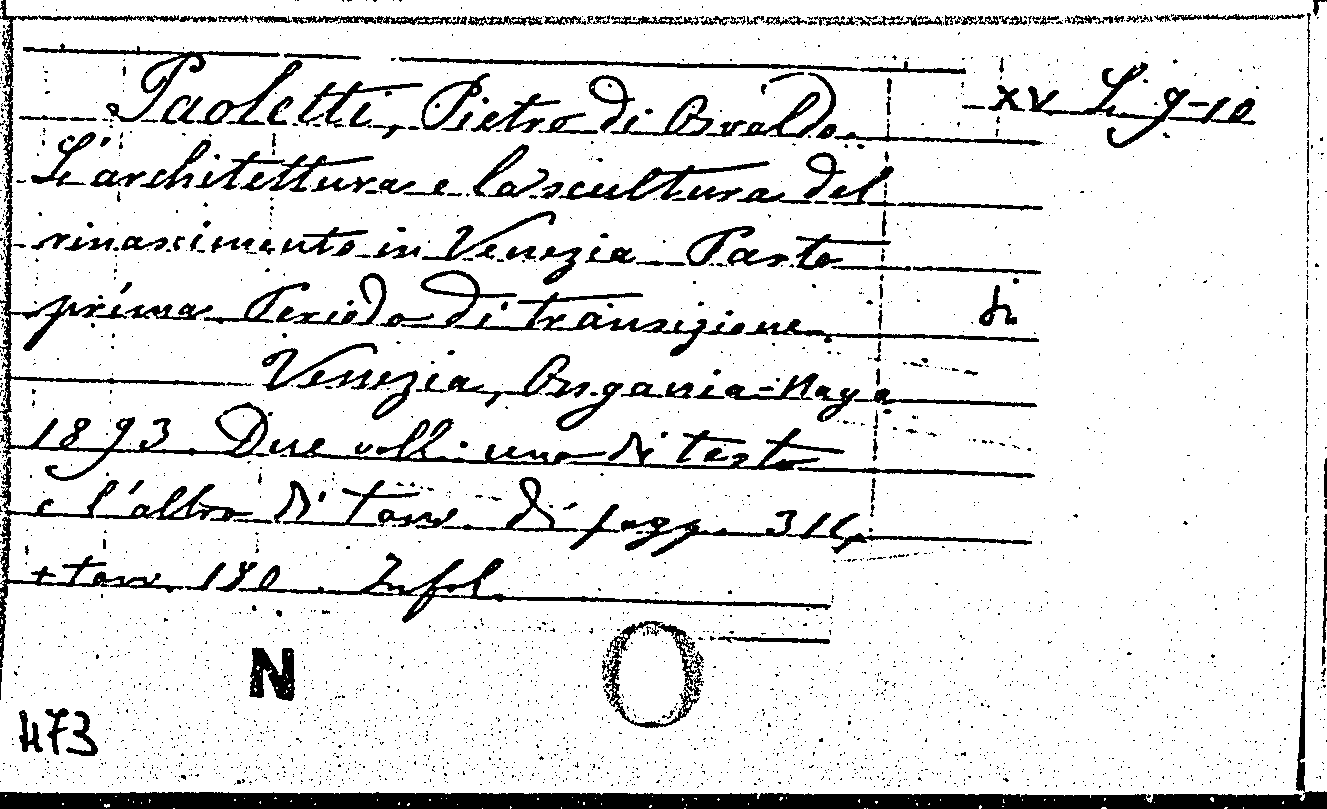 Paoletti, Pietro di Osvaldo. XV L. 9-10
L'architettura e la scultura del
rinascimento in Venezia Parte
prima. Periodo di transizione.
Venezia, Ongania-Naya
1893. Due voll. uno di testo
e l'altro di tav. di pagg.
+ tav. In fol.
N O
473